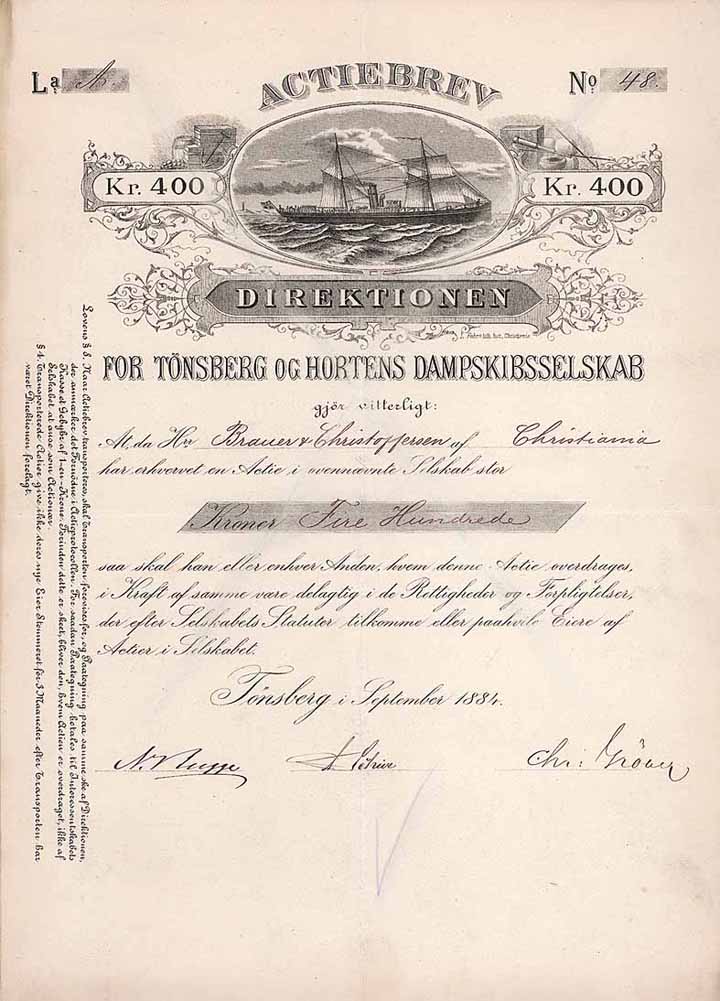 La. A.
No. 48.
ACTIEBREV
Kr. 400
Kr. 400
DIREKTIONEN
FOR TÖNSBERG OG HORTENS DAMPSKIBSSELSKAB
gjör vitterligt:
At, da Hr Brauer & Christoffersen af Christiania
har erhvervet en Actie i ovennævnte Selskab stor
Kroner Fire Hundrede
saa skal han eller enhver Anden, hvem denne Actie overdrages,
i Kraft af samme være delagtig i de Rettigheder og Forpligtelser,
der efter Selskabets Statuter tilkomme eller paahvile Eiere af
Actier i Selskabet.
Tönsberg i September 1884.
Chr: Gröner
Lovens § 3. Naar Actiebrev transporteres, skal Transporten forevises for, og Paategning paa samme ske af Direktionen,
der anmærker det Fornödne i Actieprotocollen. For saadan Paategning betales til Interessentskabets
Kasse et Gebyhr af 1-en-Krone. Forinden dette er skeet, bliver den, hvem Actien er overdraget, ikke af
Selskabet at anse som Actionær.
§ 4. Transporterede Actier give ikke deres nye Eier Stemmeret för 3 Maaneder efter Transporten har
været Direktionen forelagt.